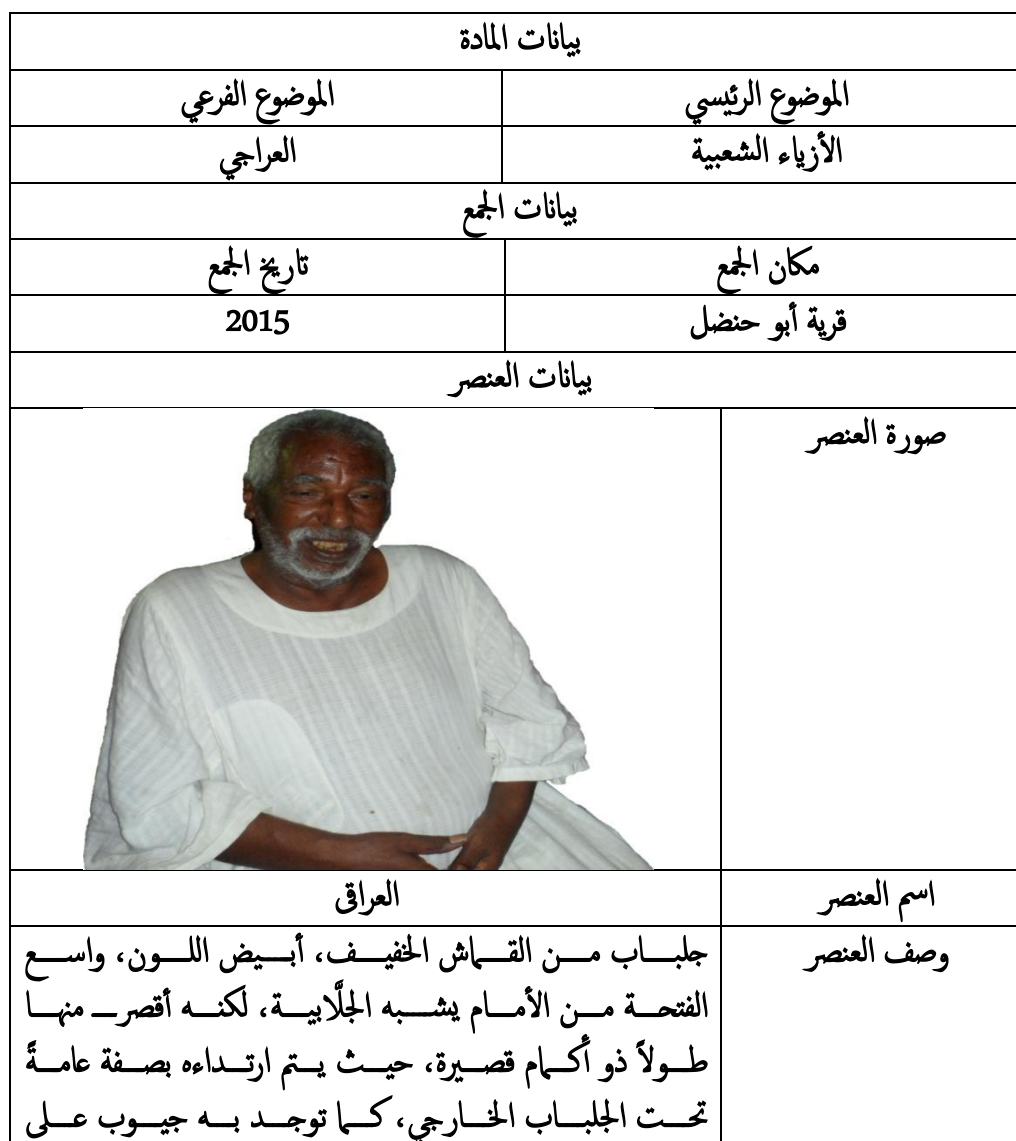 بيانات المادة
الموضوع الرئيسي
الموضوع الفرعي
الأزياء الشعبية
العراجي
بيانات الجمع
مكان الجمع
تاريخ الجمع
قرية أبو حنضل
2015
بيانات العنصر
صورة العنصر
اسم العنصر
العراقى
وصف العنصر
جلباب من القماش الخفيف، أبيض اللون، واسع
الفتحة من الأمام يشبه الجلَّابية، لكنه أقصر منها
طولاً ذو أكمام قصيرة، حيث يتم ارتداءه بصفة عامةً
تحت الجلباب الخارجي، كما توجد به جيوب على